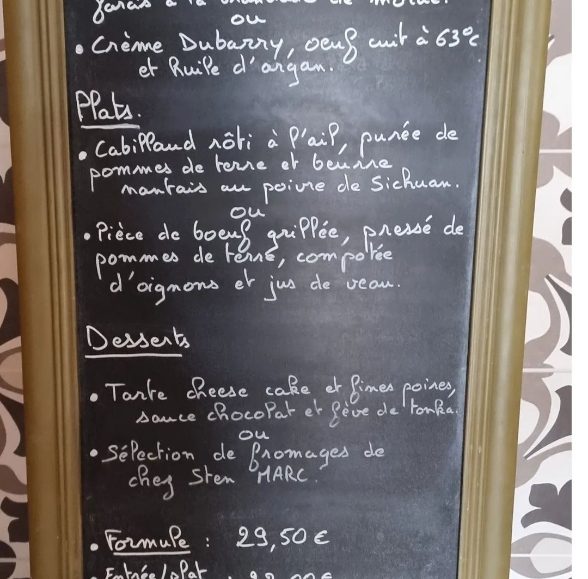 farcis à la brandade de morue.
ou
• Crème Dubarry, oeuf cuit à 63°c
et huile d'argan.
Plats.
• Cabillaud rôti à l'ail, purée de
pommes de terre et beurre
nantais au poivre de Sichuan.
ou
• Pièce de boeuf grillée, pressé de
pommes de terre, compotée
d'oignons et jus de veau.
Desserts
• Tarte cheese cake et fines poires,
sauce chocolat et fève de tonka.
ou
• Sélection de fromages de
chez Sten MARC.
• Formule : 29,50 €
Entrée/plat :